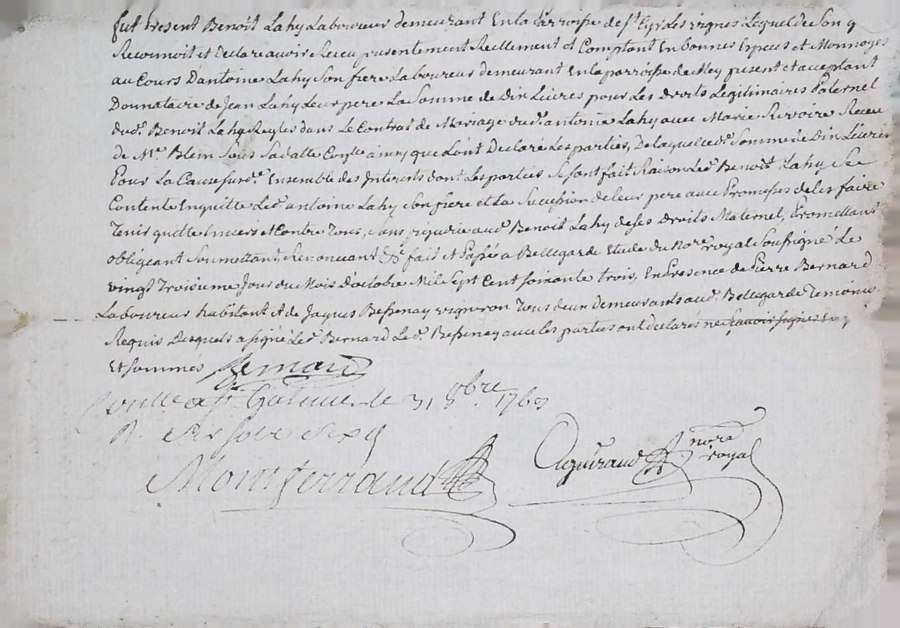 fut Present Benoît Lahy Laboureur demeurant En la Parroisse de St Cyr Les vignes Lequel de Son g
Reconnoit et declare avoir Receu presentement Reellement et Comptant En bonnes Especes et Monnoyes
au Cours Dantoine Lahy Son frere Laboureur demeurant En la parroisse de present et acceptant
Donnataire de Jean Lahy Leur pere La Somme de Dix Livres pour Les droits Legitimaires Paternel
dud. Benoît Lahy Reglés dans Le Contrat de Mariage dud. antoine Lahy avec Marie Receu
de Me. Blem Sous Sa datte ainsy que Lont Declaré Les parties, De laquelle de. Somme de Dix Livres
Pour La Cause susde. Ensemble des Interets dont Les parties Se font fait Raison Led. Benoît Lahy Se
Contente En quitte Led. antoine Lahy Son frere et La Succession de Leur pere avec Promesses de Les faire
Tenir quitte Envers et Contre Tous, Sans prejudice aud. Benoît Lahy de Ses Droits Maternel, Promettant
obligeant Soumettant Renonceant &a. fait et Passé a Bellegarde Etude du Nore. royal Soussigné Le
vingt Troisieme Jour du Mois d'octobre Mil Sept Cent Soixante trois, En Presence de Pierre Bernard
Laboureur habitant et de Jaques Bessenay vigneron Tous deux demeurants aud. Bellegarde Temoins
Requis Desquels a signé Led. Bernard Le d. Bessenay avec Les parties ont declarés ne Scavoir Signer
Et Sommés Bernard
a St Galmier le 31 8bre 1763
R.
Montferrand
Aguiraud nore royal